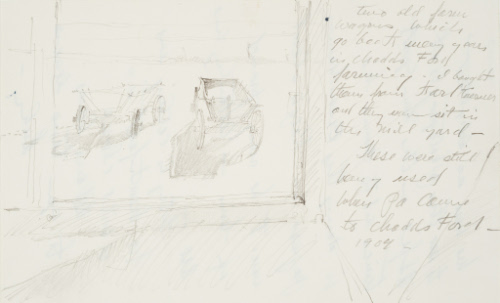 two old farm
wagons which
go back many years
in Chadds Ford
farming. I bought
them from Karl
and they now sit in
the mill yard —
These were still
being used
when Pa came
to Chadds Ford —
1904 —